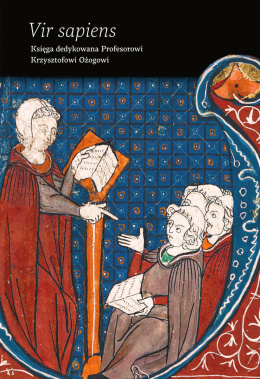 Vir sapiens
Księga dedykowana Profesorowi
Krzysztofowi Ożogowi